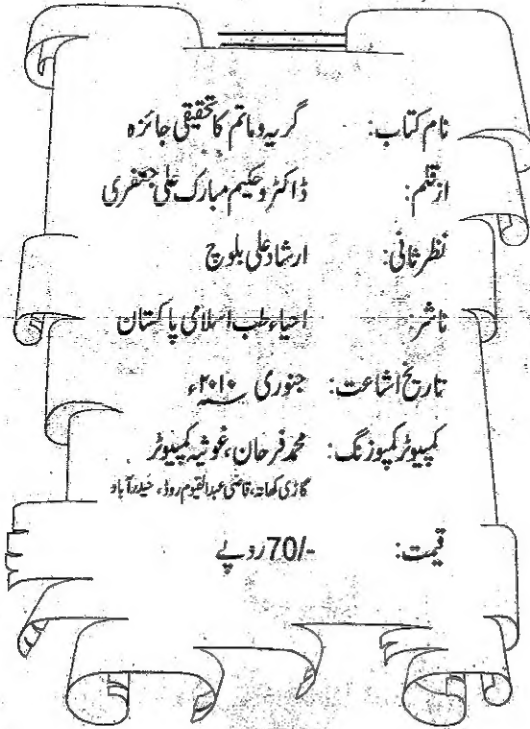 نام کتاب: گریہ و ماتم کا تحقیقی جائزہ
از قلم: ڈاکٹر و حکیم مبارک علی جعفری
نظر ثانی: ارشاد علی بلوچ
ناشر: احیاء طب اسلامی پاکستان
تاریخ اشاعت: جنوری ۲۰۱۰ء
کمپیوٹر کمپوزنگ: محمد فرحان، غوثیہ کمپیوٹر
گاڑی کھاتہ، قاضی عبدالقیوم روڈ، حیدرآباد
قیمت: 70/- روپے